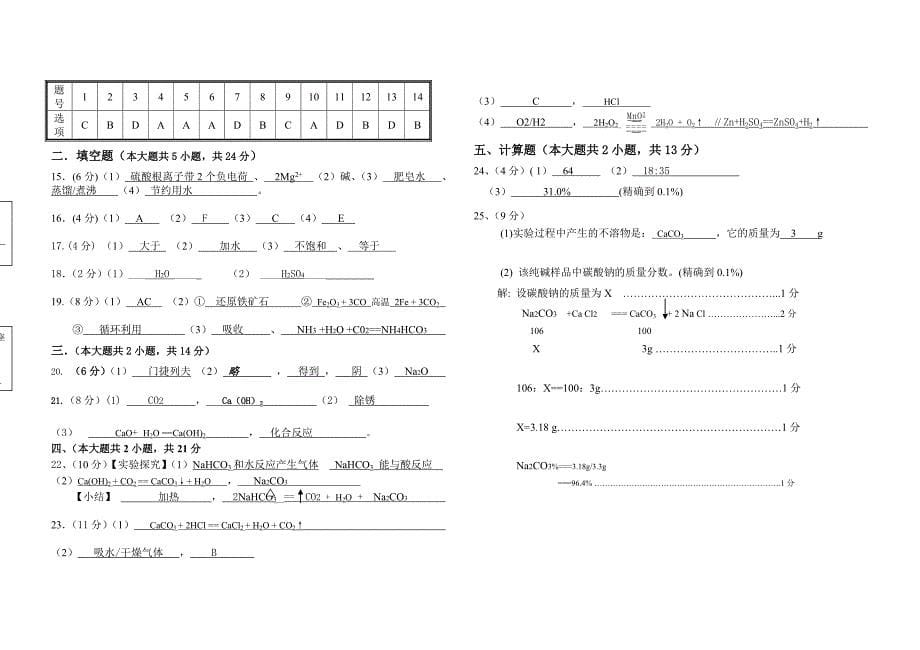 题号 1 2 3 4 5 6 7 8 9 10 11 12 13 14
选项 C B D A A A D B C A D B D B
二．填空题（本大题共 5 小题，共 24 分）
15．(6 分)（1） 硫酸根离子带 2 个负电荷 、 2Mg²⁺ （2）碱、（3） 肥皂水 、
蒸馏/煮沸 （4） 节约用水 。
16．(4 分)（1） A （2） F （3） C （4） E
17．(4 分) （1） 大于 （2） 加水 （3） 不饱和 、 等于
18．（2 分）（1） H₂O （2） H₂SO₄
19．（8 分）（1） AC （2）① 还原铁矿石 ② Fe₂O₃ + 3CO 高温 2Fe + 3CO₂
③ 循环利用 （3） 吸收 、 NH₃ +H₂O +CO₂==NH₄HCO₃
三．（本大题共 2 小题，共 14 分）
20. （6 分）（1） 门捷列夫 （2） 略 ，得到，阴（3） Na₂O
21.（8 分）（1） CO2 ， Ca（OH）₂ （2） 除锈
（3） CaO+ H₂O ══Ca(OH)₂ ， 化合反应 。
四、（本大题共 2 小题，共 21 分
22、（10 分）【实验探究】（1）NaHCO₃ 和水反应产生气体 NaHCO₃ 能与酸反应
（2）Ca(OH)₂ + CO₂ == CaCO₃↓+ H₂O ， Na₂CO₃
【小结】 加热 ， 2NaHCO₃ △ == ↑ CO2 + H₂O + Na₂CO₃
23．（11 分）（1） CaCO₃ + 2HCl == CaCl₂ + H₂O + CO₂↑
（2） 吸水/干燥气体 ， B
（3） C ， HCl
（4） O2/H2 ， 2H₂O₂ MnO2 ==== 2H₂O + O₂↑ // Zn+H₂SO₄==ZnSO₄+H₂↑
五、计算题（本大题共 2 小题，共 13 分）
24、（4 分）（1） 64 （2） 18:35
（3） 31.0% (精确到 0.1%)
25、（9 分）
(1)实验过程中产生的不溶物是： CaCO₃ ，它的质量为 3 g
(2) 该纯碱样品中碳酸钠的质量分数。(精确到 0.1%)
解: 设碳酸钠的质量为 X ……………………………………..1 分
Na₂CO₃ +Ca Cl2 === CaCO₃ ↓ + 2 Na Cl …………………...2 分
106 100
X 3g ……………………………..1 分
106：X==100：3g……………………………………………1 分
X=3.18 g………………………………………………………1 分
Na₂CO₃%===3.18g/3.3g
===96.4% …………………………………………………………..1 分